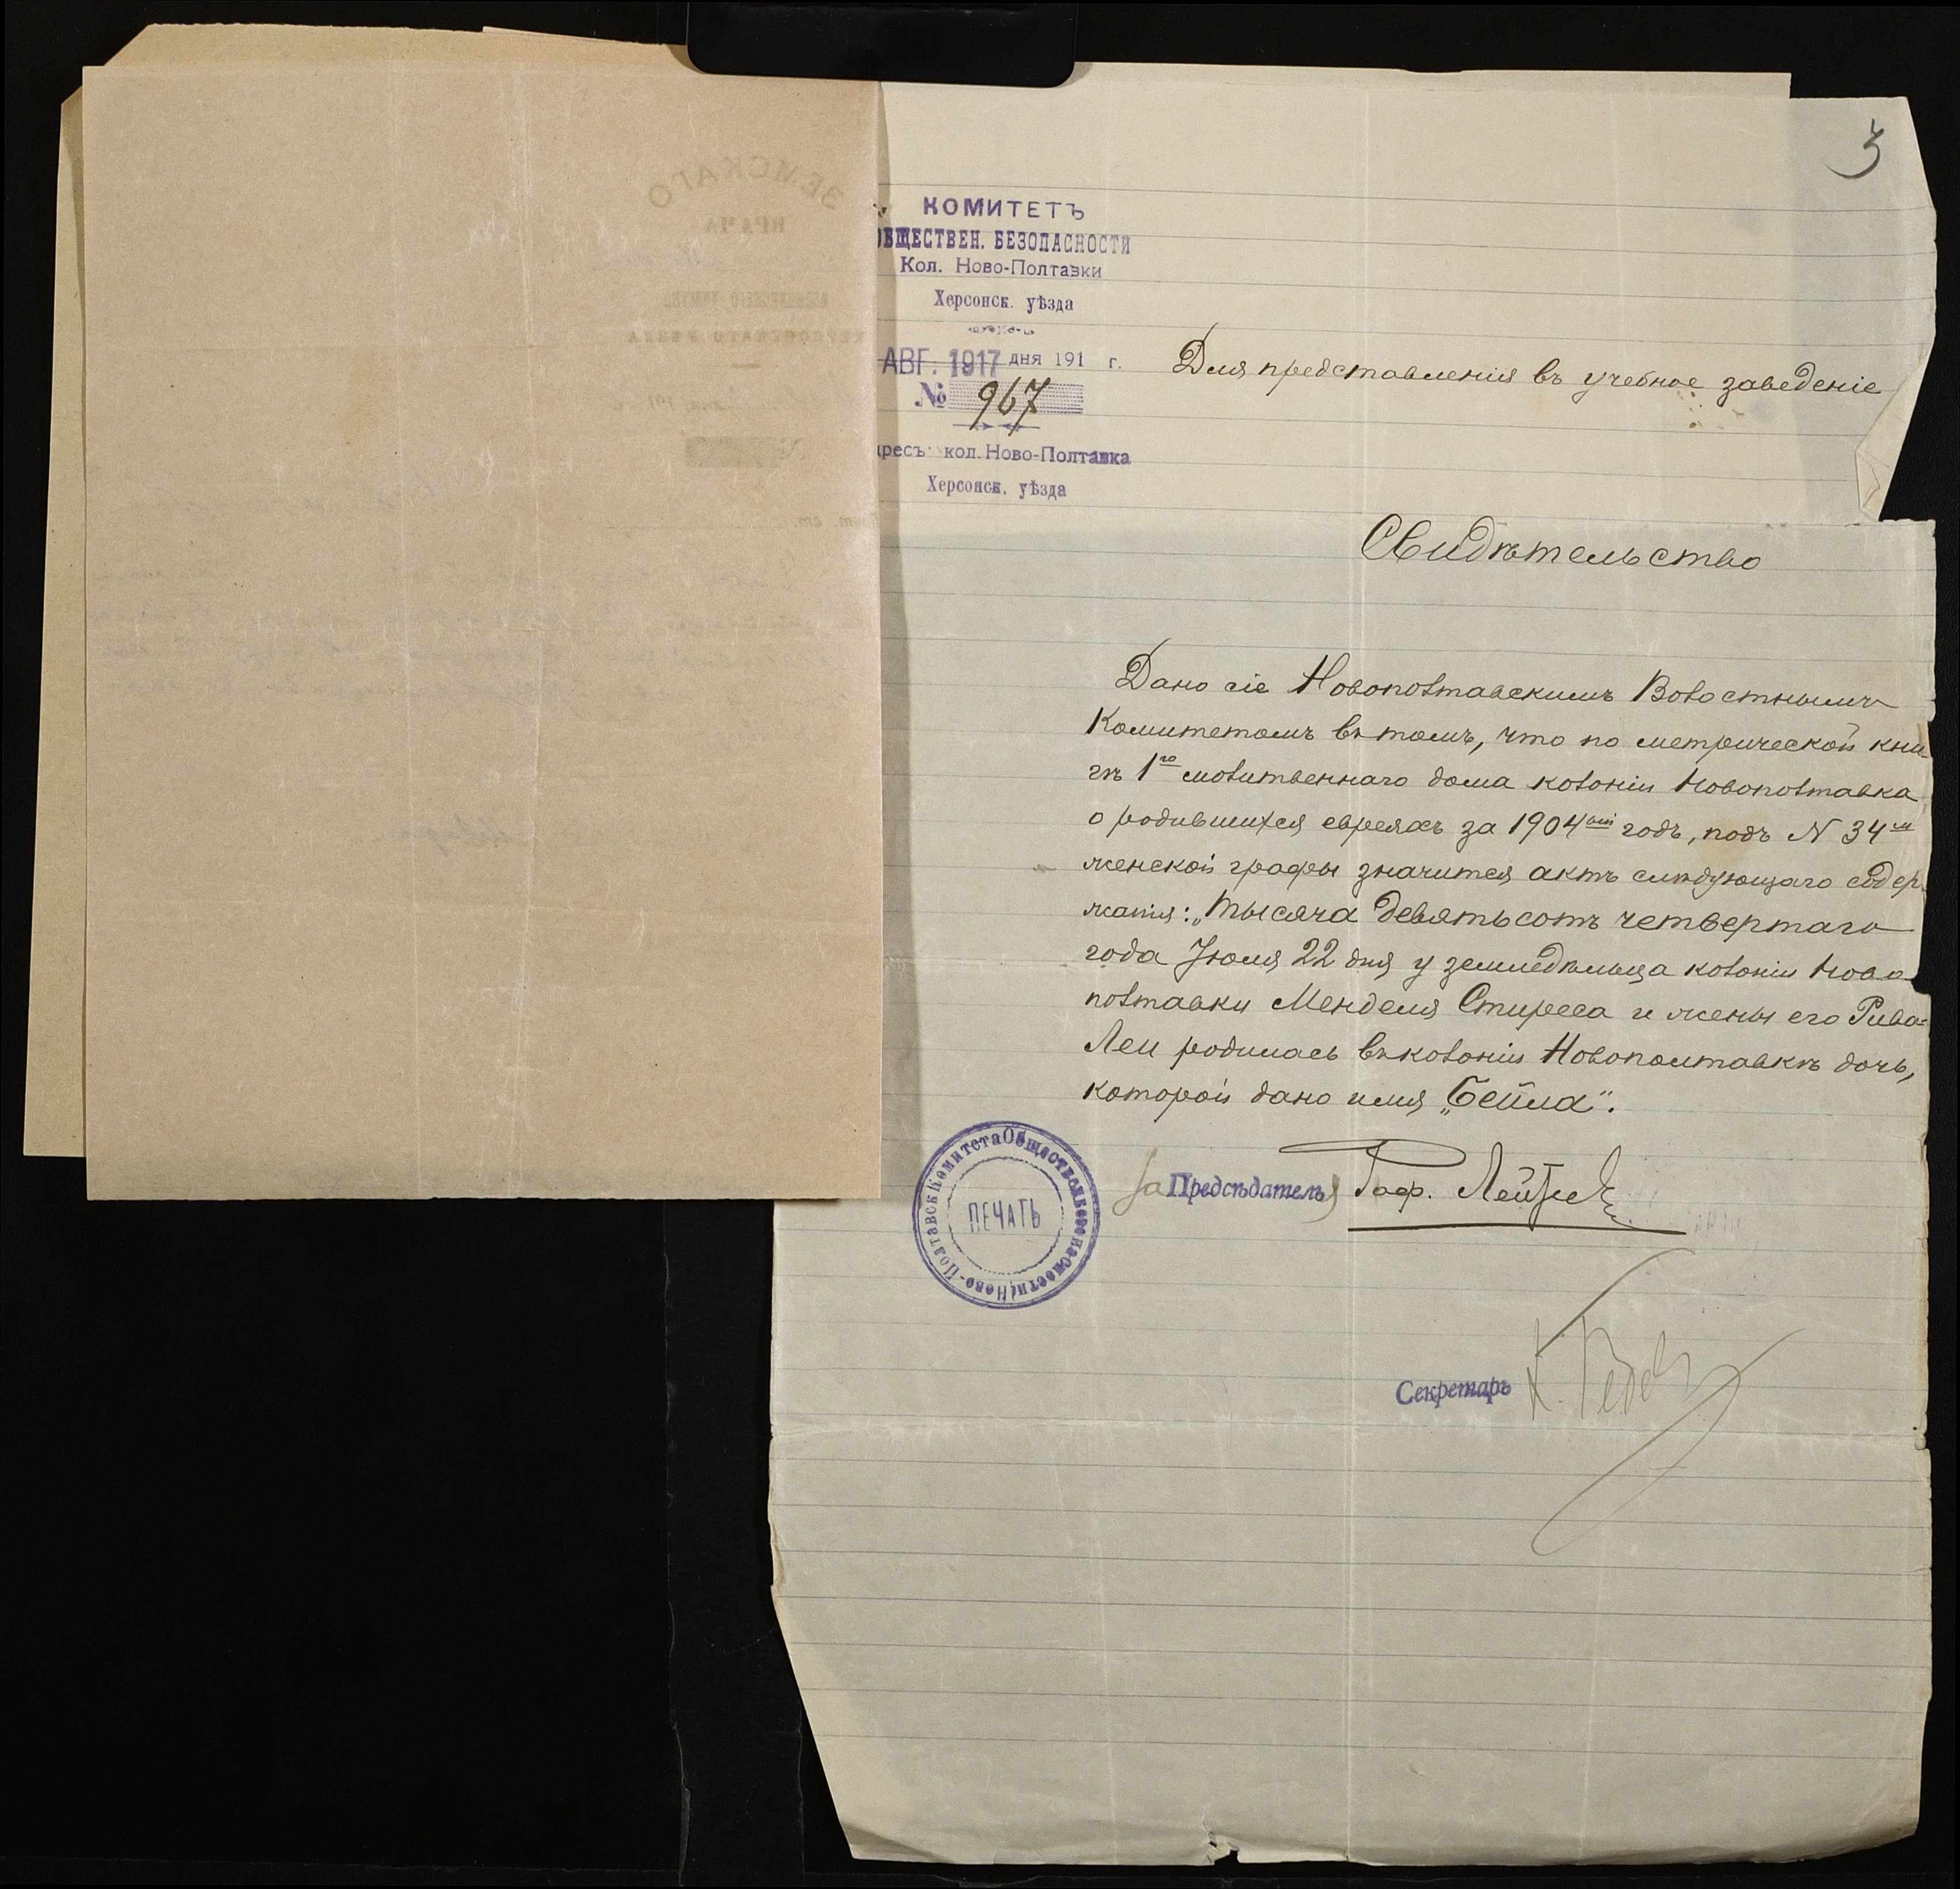 3
КОМИТЕТЪ
ОБЩЕСТВЕН. БЕЗОПАСНОСТИ
Кол. Ново-Полтавки
Херсонск. уѣзда
АВГ. 1917 дня 191 г.
№ 967
дресъ: кол. Ново-Полтавка
Херсонск. уѣзда
Для представленія въ учебное заведеніе
Свидѣтельство
Дано сіе Новополтавскимъ Волостнымъ
Комитетомъ въ томъ, что по метрической кни-
гѣ 1го молитвеннаго дома колоніи Новополтавка
о родившихся евреяхъ за 1904ый годъ, подъ N 34м
женской графы значится актъ слѣдующаго содер-
жанія: „Тысяча девятьсотъ четвертаго
года Іюля 22 дня у земледѣльца колоніи Ново
полтавки Менделя Стиреса и жены его Рива=
Леи родилась въ колоніи Новополтавкѣ дочь,
которой дано имя „Бейла".
За Предсѣдателя Раф.
Ново-Полтавск Комитета Обществен Безопасности
ПЕЧАТЬ
Секретарь К.
ЗЕМСКАГО
ВРАЧА
ХЕРСОНСКАГО УѢЗДА